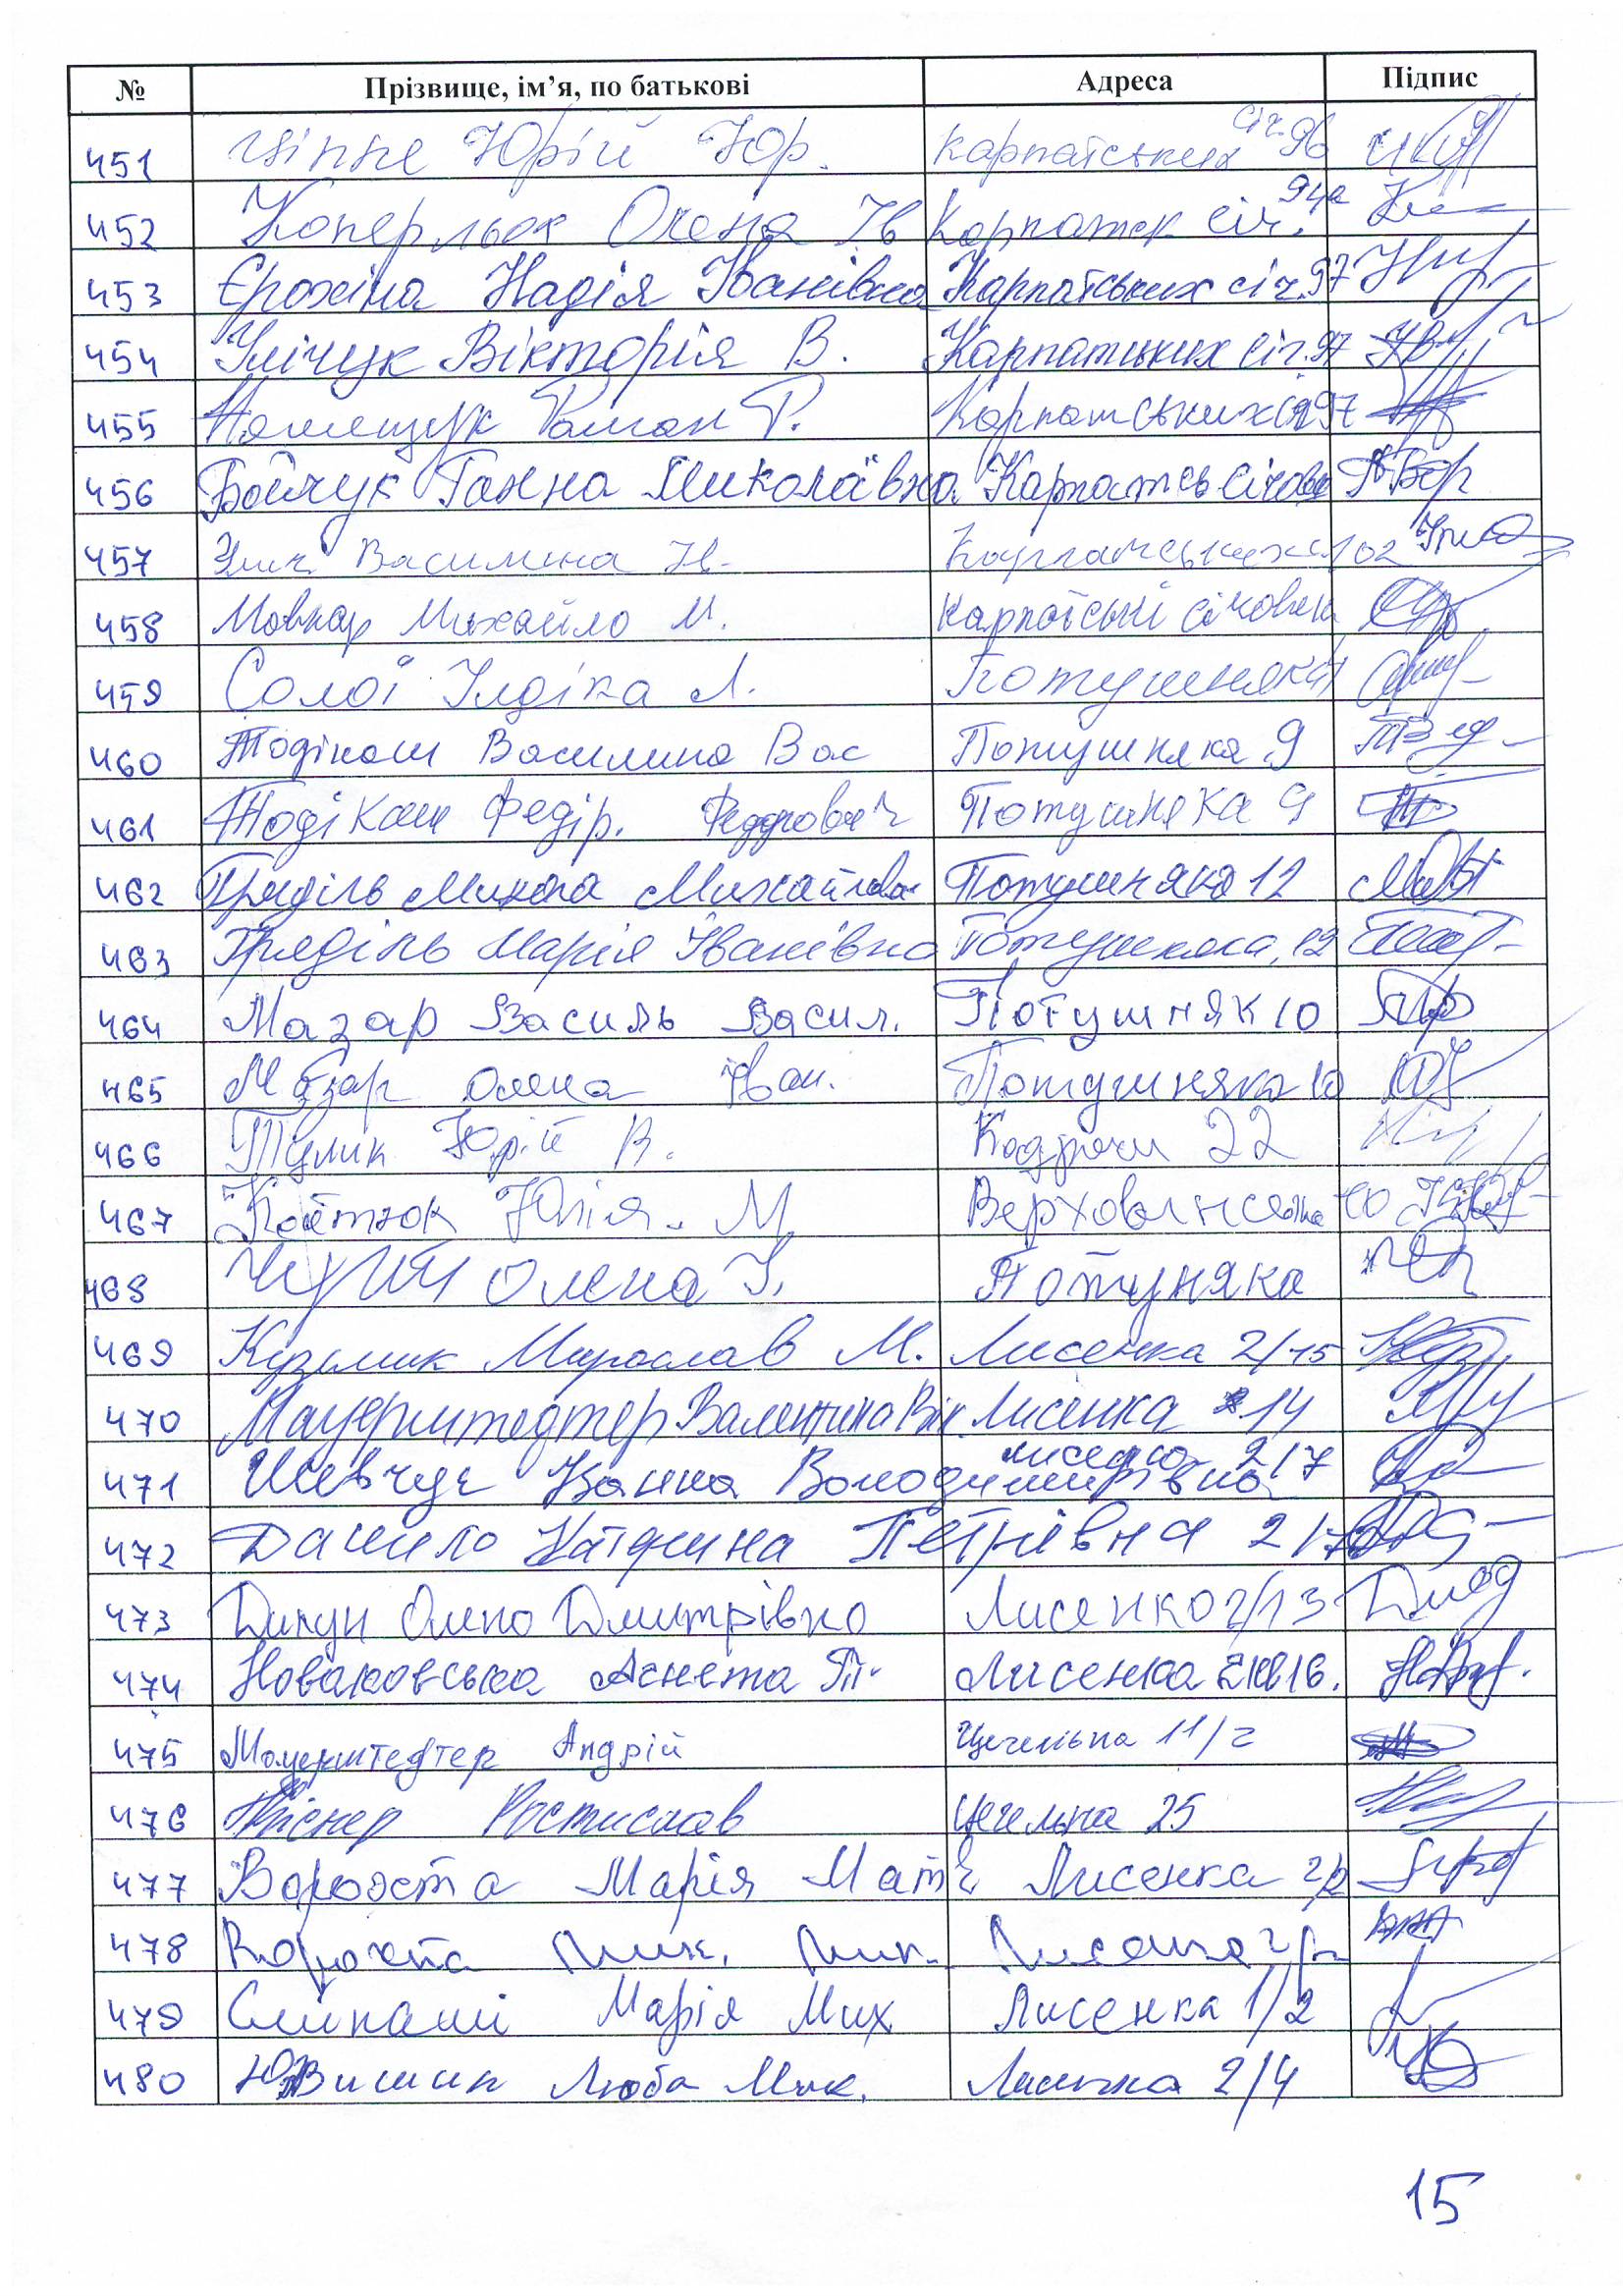 № Прізвище, ім’я, по батькові Адреса Підпис
451 Юрій Юр. Карпатських Січ. 96
452 Коперльок Олена Ів Карпатск Січ. 94а
453 Єрохіна Надія Іванівна Карпатських січ. 97
454 Улічук Вікторія В. Карпатських Січ. 97
455 Роман Р. Карпатських 97
456 Бойчук Ганна Миколаївна Карпатсь Січов
457 Василина Карпатських 102
458 Мовнар Михайло М. Карпатські Січових
459 Солої Ілдіка Л. Потушняка
460 Тодікаш Василина Вас Потушняка 9
461 Тодікаш Федір. Федорович Потушняка 9
462 Гряділь Микола Михайлов Потушняка 12
463 Гряділь Марія Іванівна Потушняка, 12
464 Мазар Василь Васил. Потушняк 10
465 Мазар Олена Іван. Потушняка 10
466 Тулик Юрій В. 22
467 Юлія. М Верховинська
468 Олена І. Потуняка
469 Кузьмик Мирослав М. Лисенка 2/15
470 Мауерштедтер Валентина Вік. Лисенка 14
471 Шевчук Жанна Володимирівна Лисенко 2/7
472 Данило Катерина Петрівна
473 Дикун Олена Дмитрівна Лисенко 2/13
474 Новаковська Агнета П. Лисенка 2 кв 16.
475 Мауерштедтер Андрій Цегельна 11/2
476 Ростислав Цегельна 25
477 Ворохта Марія Мат Лисенка 2/2
478 Ворохта Мик. Мик. Лисенка 2/2
479 Марія Мих Лисенка 1/2
480 Люба Мик. Лисенка 2/4
15